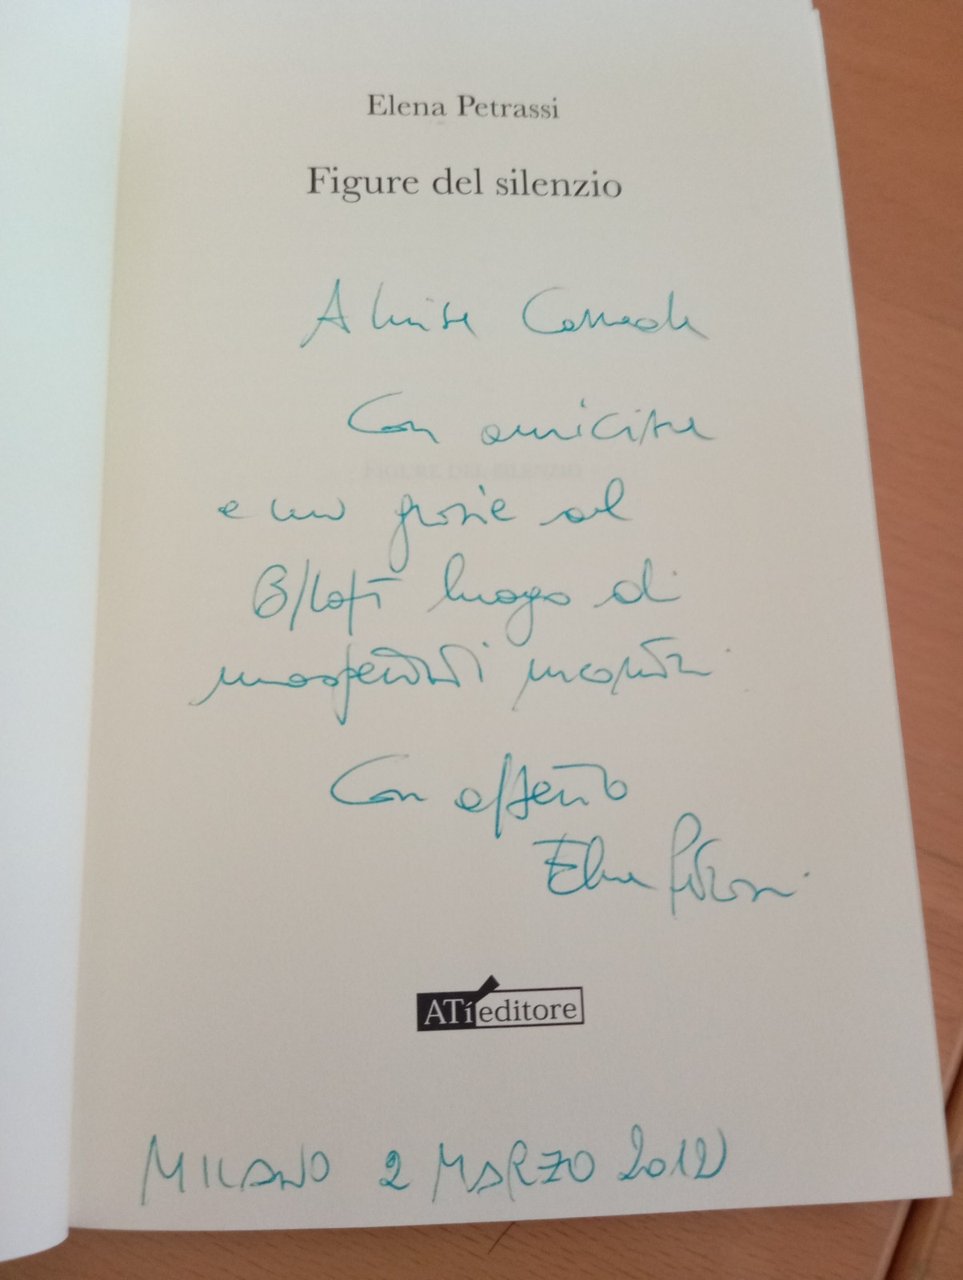 Elena Petrassi
Figure del silenzio
A Luisa
Con amicizia
FIGURE DEL SILENZIO
e un grazie al
luogo di
inaspettati incontri.
Con affetto
Elena Petrassi
ATí editore
MILANO 2 MARZO 2012